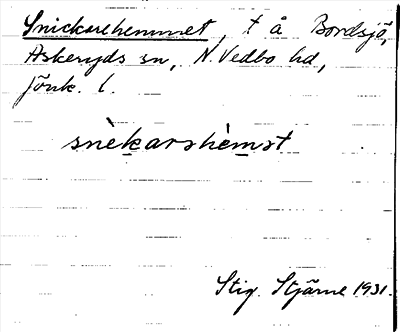 Snickarehemmet, t å Bordsjö,
Askeryds sn, N. Vedbo hd,
Jönk. l.
snèkarshèmst
Stig. Stjärne 1931.